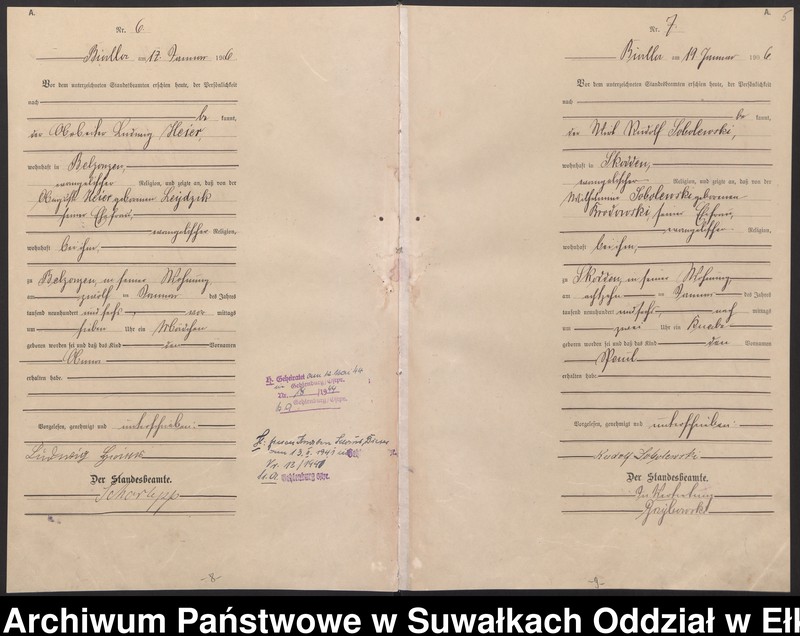 A.
Nr. 6
Bialla am 17. Januar 1906
Vor dem unterzeichneten Standesbeamten erschien heute, der Persönlichkeit
nach
be kannt,
der Arbeiter Ludwig Heier,
wohnhaft in Belzonzen,
evangelischer Religion, und zeigte an, daß von der
Auguste Heier, geborenen
seiner Ehefrau,
evangelischer Religion,
wohnhaft bei ihm,
zu Belzonzen, in seiner Wohnung,
am zwölf ten Januar des Jahres
tausend neunhundert und sechs, vor mittags
um sieben Uhr ein Mädchen
geboren worden sei und daß das Kind den Vornamen
erhalten habe.
Vorgelesen, genehmigt und unterschrieben:
Ludwig
Der Standesbeamte.
H. Geheiratet am
Gehlenburg/Ostpr.
Nr. 18 /1944
13. 1941
Nr. 12/1941
Gehlenburg Ostpr.
-8-
A.
5
Nr. 7
Bialla am 19 Januar 1906.
Vor dem unterzeichneten Standesbeamten erschien heute, der Persönlichkeit
nach
be kannt,
der Wirt Rudolf Sobolewski,
wohnhaft in Skodden,
evangelischer Religion, und zeigte an, daß von der
Wilhelmine Sobolewski geborenen
Brodowski, seiner Ehefrau,
evangelischer Religion,
wohnhaft bei ihm,
zu Skodden, in seiner Wohnung,
am achtzehn ten Januar des Jahres
tausend neunhundert und sechs, nach mittags
um zwei Uhr ein Knabe
geboren worden sei und daß das Kind den Vornamen
Paul
erhalten habe.
Vorgelesen, genehmigt und unterschrieben:
Rudolf Sobolewski
Der Standesbeamte.
In Vertretung
-9-
Archiwum Państwowe w Suwałkach Oddział w Eł